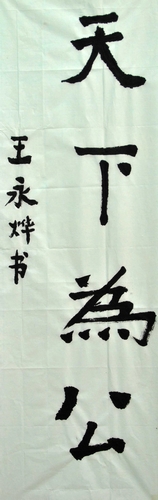 天下為公
王永烨书